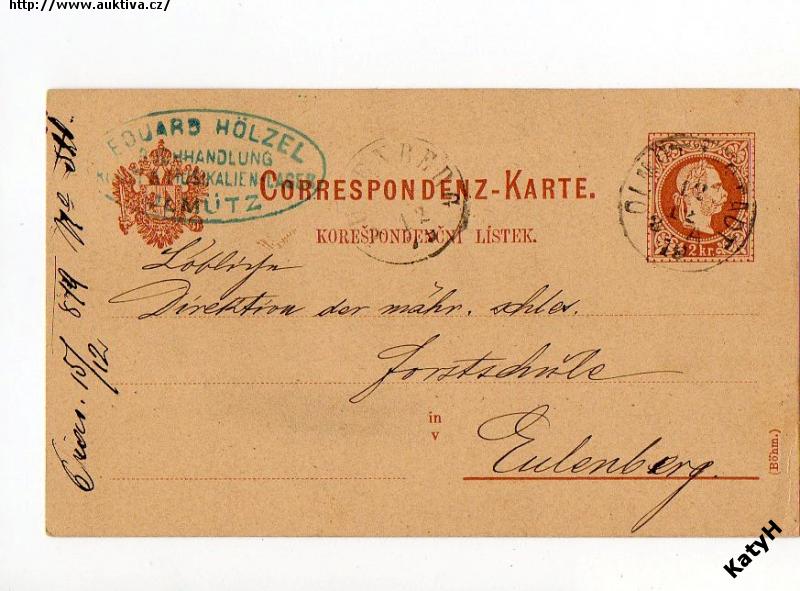 http://www.auktiva.cz/
EDUARD HÖLZEL
BUCHHANDLUNG
KUNST & MUSIKALIEN LAGER
OLMÜTZ
CORRESPONDENZ-KARTE.
KOREŠPONDENČNÍ LÍSTEK.
OLMÜTZ
2 kr.
Löbliche
Direktion der mähr. schles.
Forstschule
in
v
Eulenberg.
(Böhm.)
15/12 879
KatyH